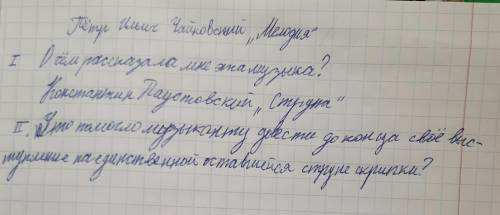 Пётр Ильич Чайковский „Мелодия"
I О чём рассказала мне эта музыка?
Константин Паустовский „Струна"
II. Что помогло музыканту довести до конца своё выс-
тупление на единственной оставшейся струне скрипки?